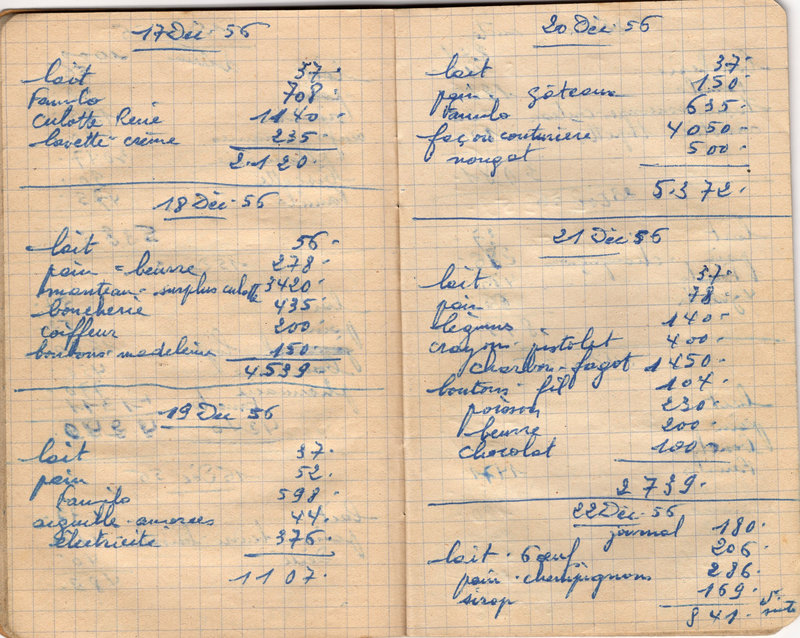 17 Déc. 56
lait 37.
Familo 708.
Culotte René 1140.
lavette crème 235.
2.120.
18 Déc. 56
lait 56.
pain = beurre 278.
manteau. surplus culotte 3420.
boucherie 435.
coiffeur 200.
bonbons madeleine 150.
4539
19 Déc. 56
lait 37.
pain 52.
Familo 598.
aiguille. 44.
électricité 376.
1107.
20 Déc. 56
lait 37.
pain. gâteaux 150.
Familo 635.
façon couturière 4050.
nougat 500.
5.372.
21 Déc. 56
lait. 37.
pain 78.
légumes 140.
crayons. pistolet 400.
charbon. fagot 1450.
boutons. fil 104.
poisson 230.
beurre 200.
chocolat 100.
2739.
22 Déc. 56
journal 180.
lait. 6 œuf 206.
pain. champignons 286.
sirop 169.
841. suite